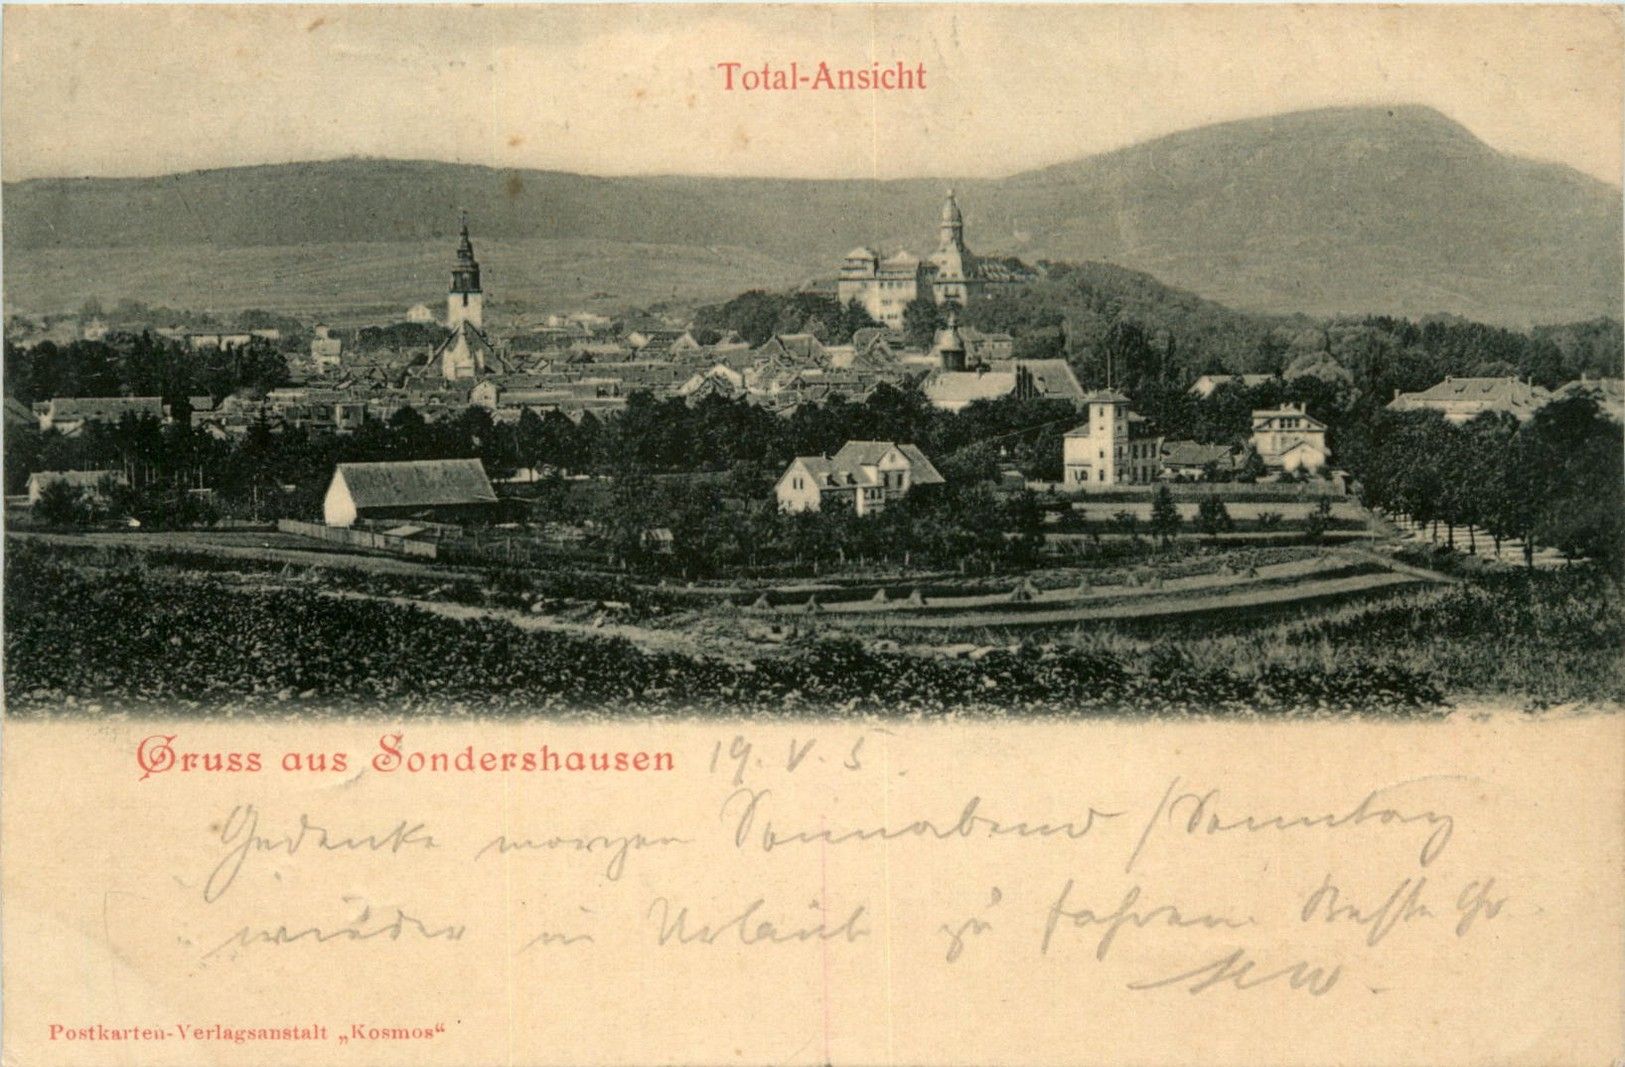 Total-Ansicht
Gruss aus Sondershausen 19. V. 5.
Gedenke morgen Sonnabend / Sonntag
wieder in Urlaub zu fahren
Postkarten-Verlagsanstalt „Kosmos“